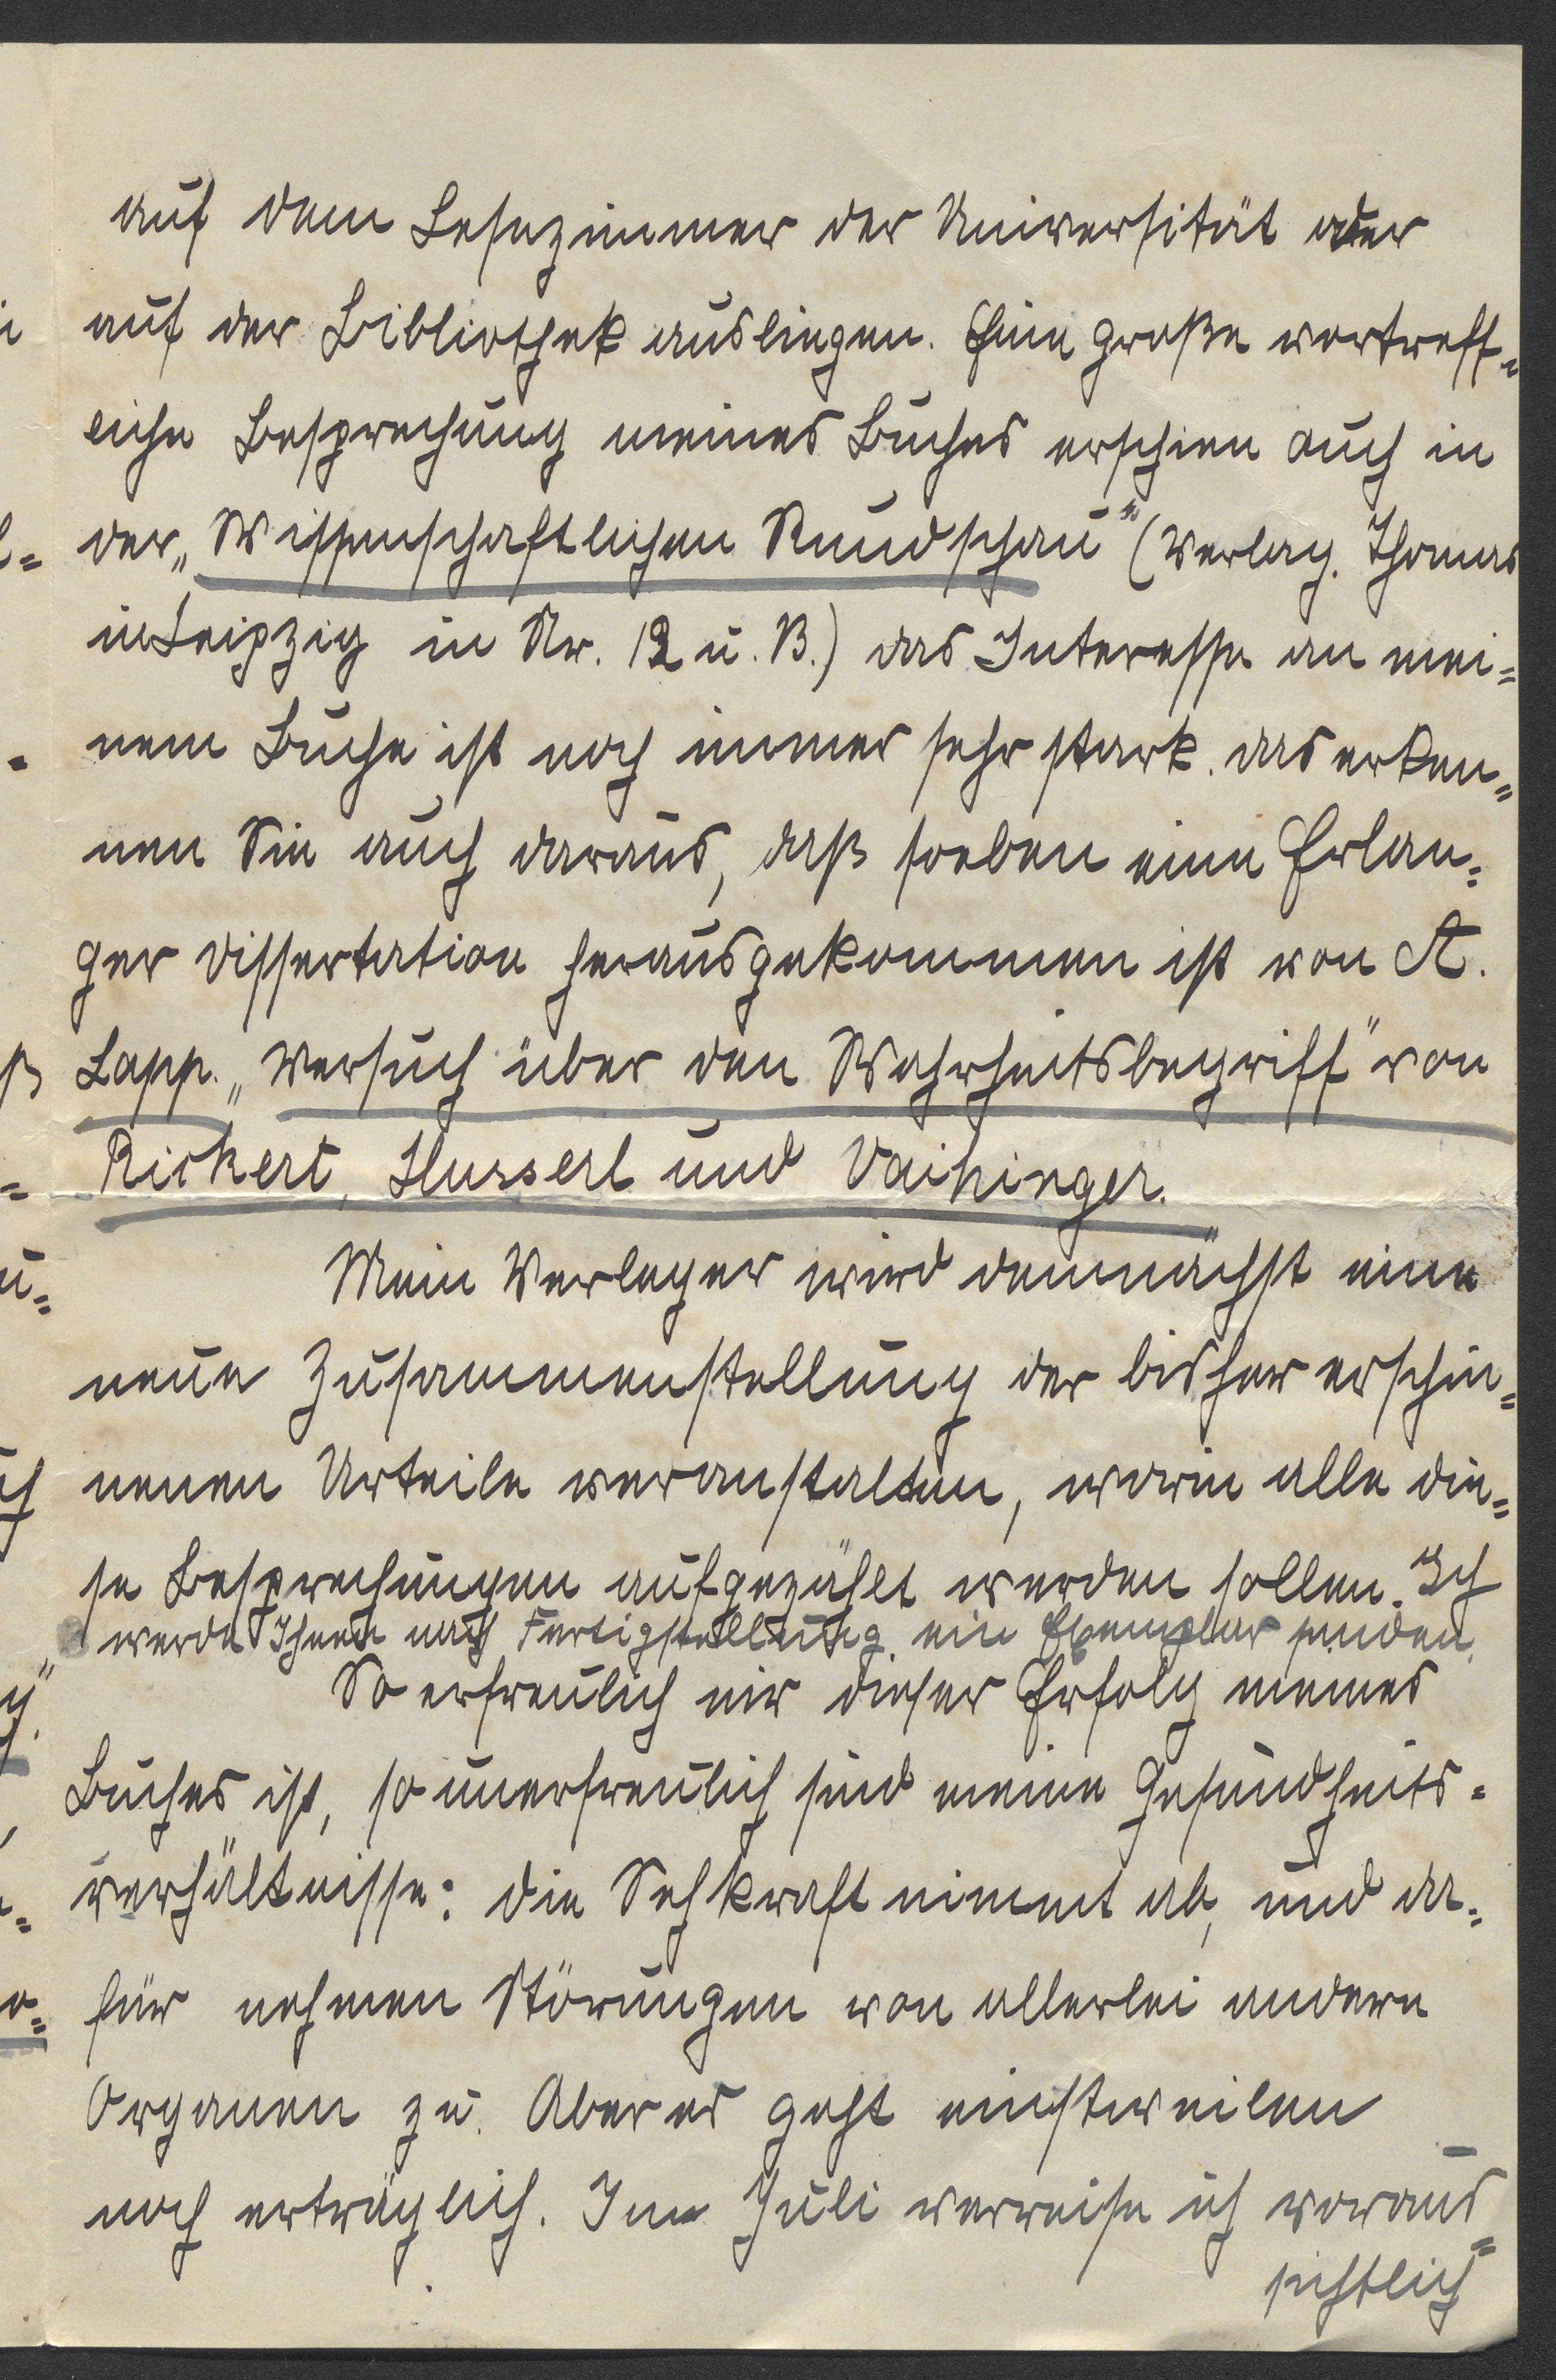 auf dem Lesezimmer der Universität oder
auf der Bibliothek ausliegen. Eine große vortreff=
liche Besprechung meines Buches erschien auch in
der „Wissenschaftlichen Rundschau" (Verlag. Thomas
in Leipzig in Nr. 12 u. 13.) das Interesse an mei=
nem Buche ist noch immer sehr stark. das erken=
nen Sie auch daraus, daß soeben eine Erlan=
ger Dissertation herausgekommen ist von A.
Lapp. „Versuch über den Wahrheitsbegriff" von
Rickert, Husserl und Vaihinger.
Mein Verleger wird demnächst eine
neue Zusammenstellung der bisher erschie=
nenen Urteile veranstalten, worin alle die=
se Besprechungen aufgezählt werden sollen. Ich
werde Ihnen nach Fertigstellung ein Exemplar senden.
So erfreulich mir dieser Erfolg meines
Buches ist, so unerfreulich sind meine Gesundheits=
verhältnisse: die Sehkraft nimmt ab, und da=
für nehmen Störungen von allerlei andern
Organen zu. Aber es geht einstweilen
noch erträglich. Im Juli verreise ich voraus=
sichtlich